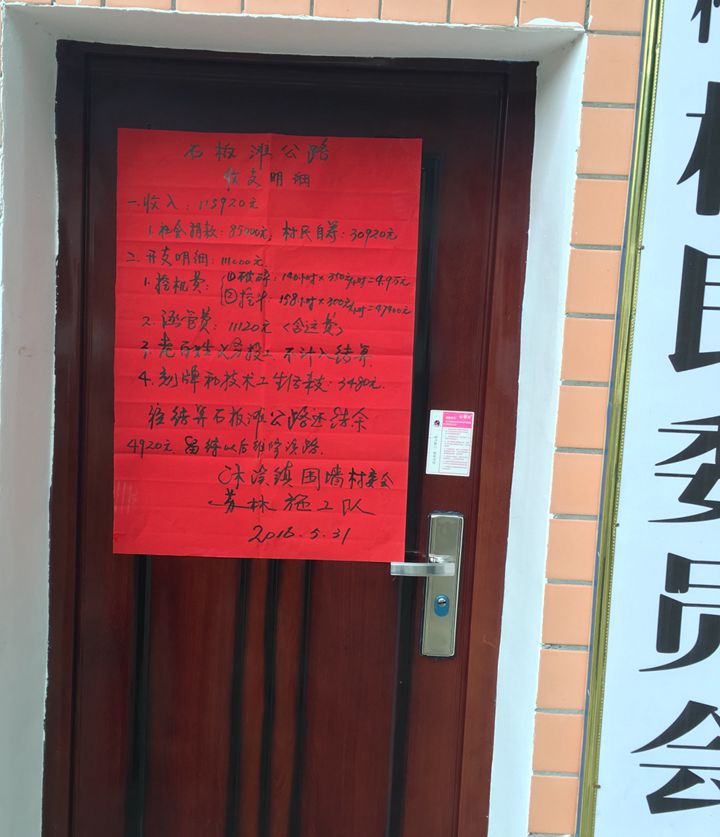 石板滩公路
收支明细
一.收入：115920元
1.社会捐款：85000元，村民自筹：30920元
二.开支明细：111000元
1.挖机费：①破碎：140小时×350元/小时=4.9万元
②挖斗：158小时×300元/小时=47400元
2.涵管费：11120元（含运费）
3.老百姓义务投工不计入结算
4.刻牌和技术工生活费：3480元.
经结算石板滩公路还结余
4920元.留待以后维修道路.
沐浍镇围墙村委会
施工队
2016.5.31
村民委员会